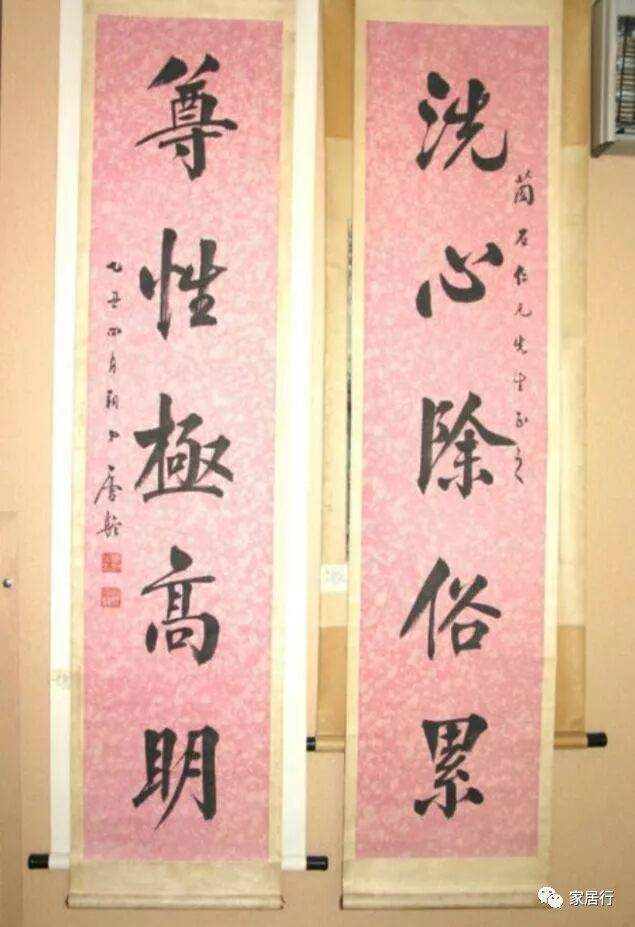 洗心除俗累
茵石仁兄先生正之
尊性極高明
乙丑四月朔日
家居行